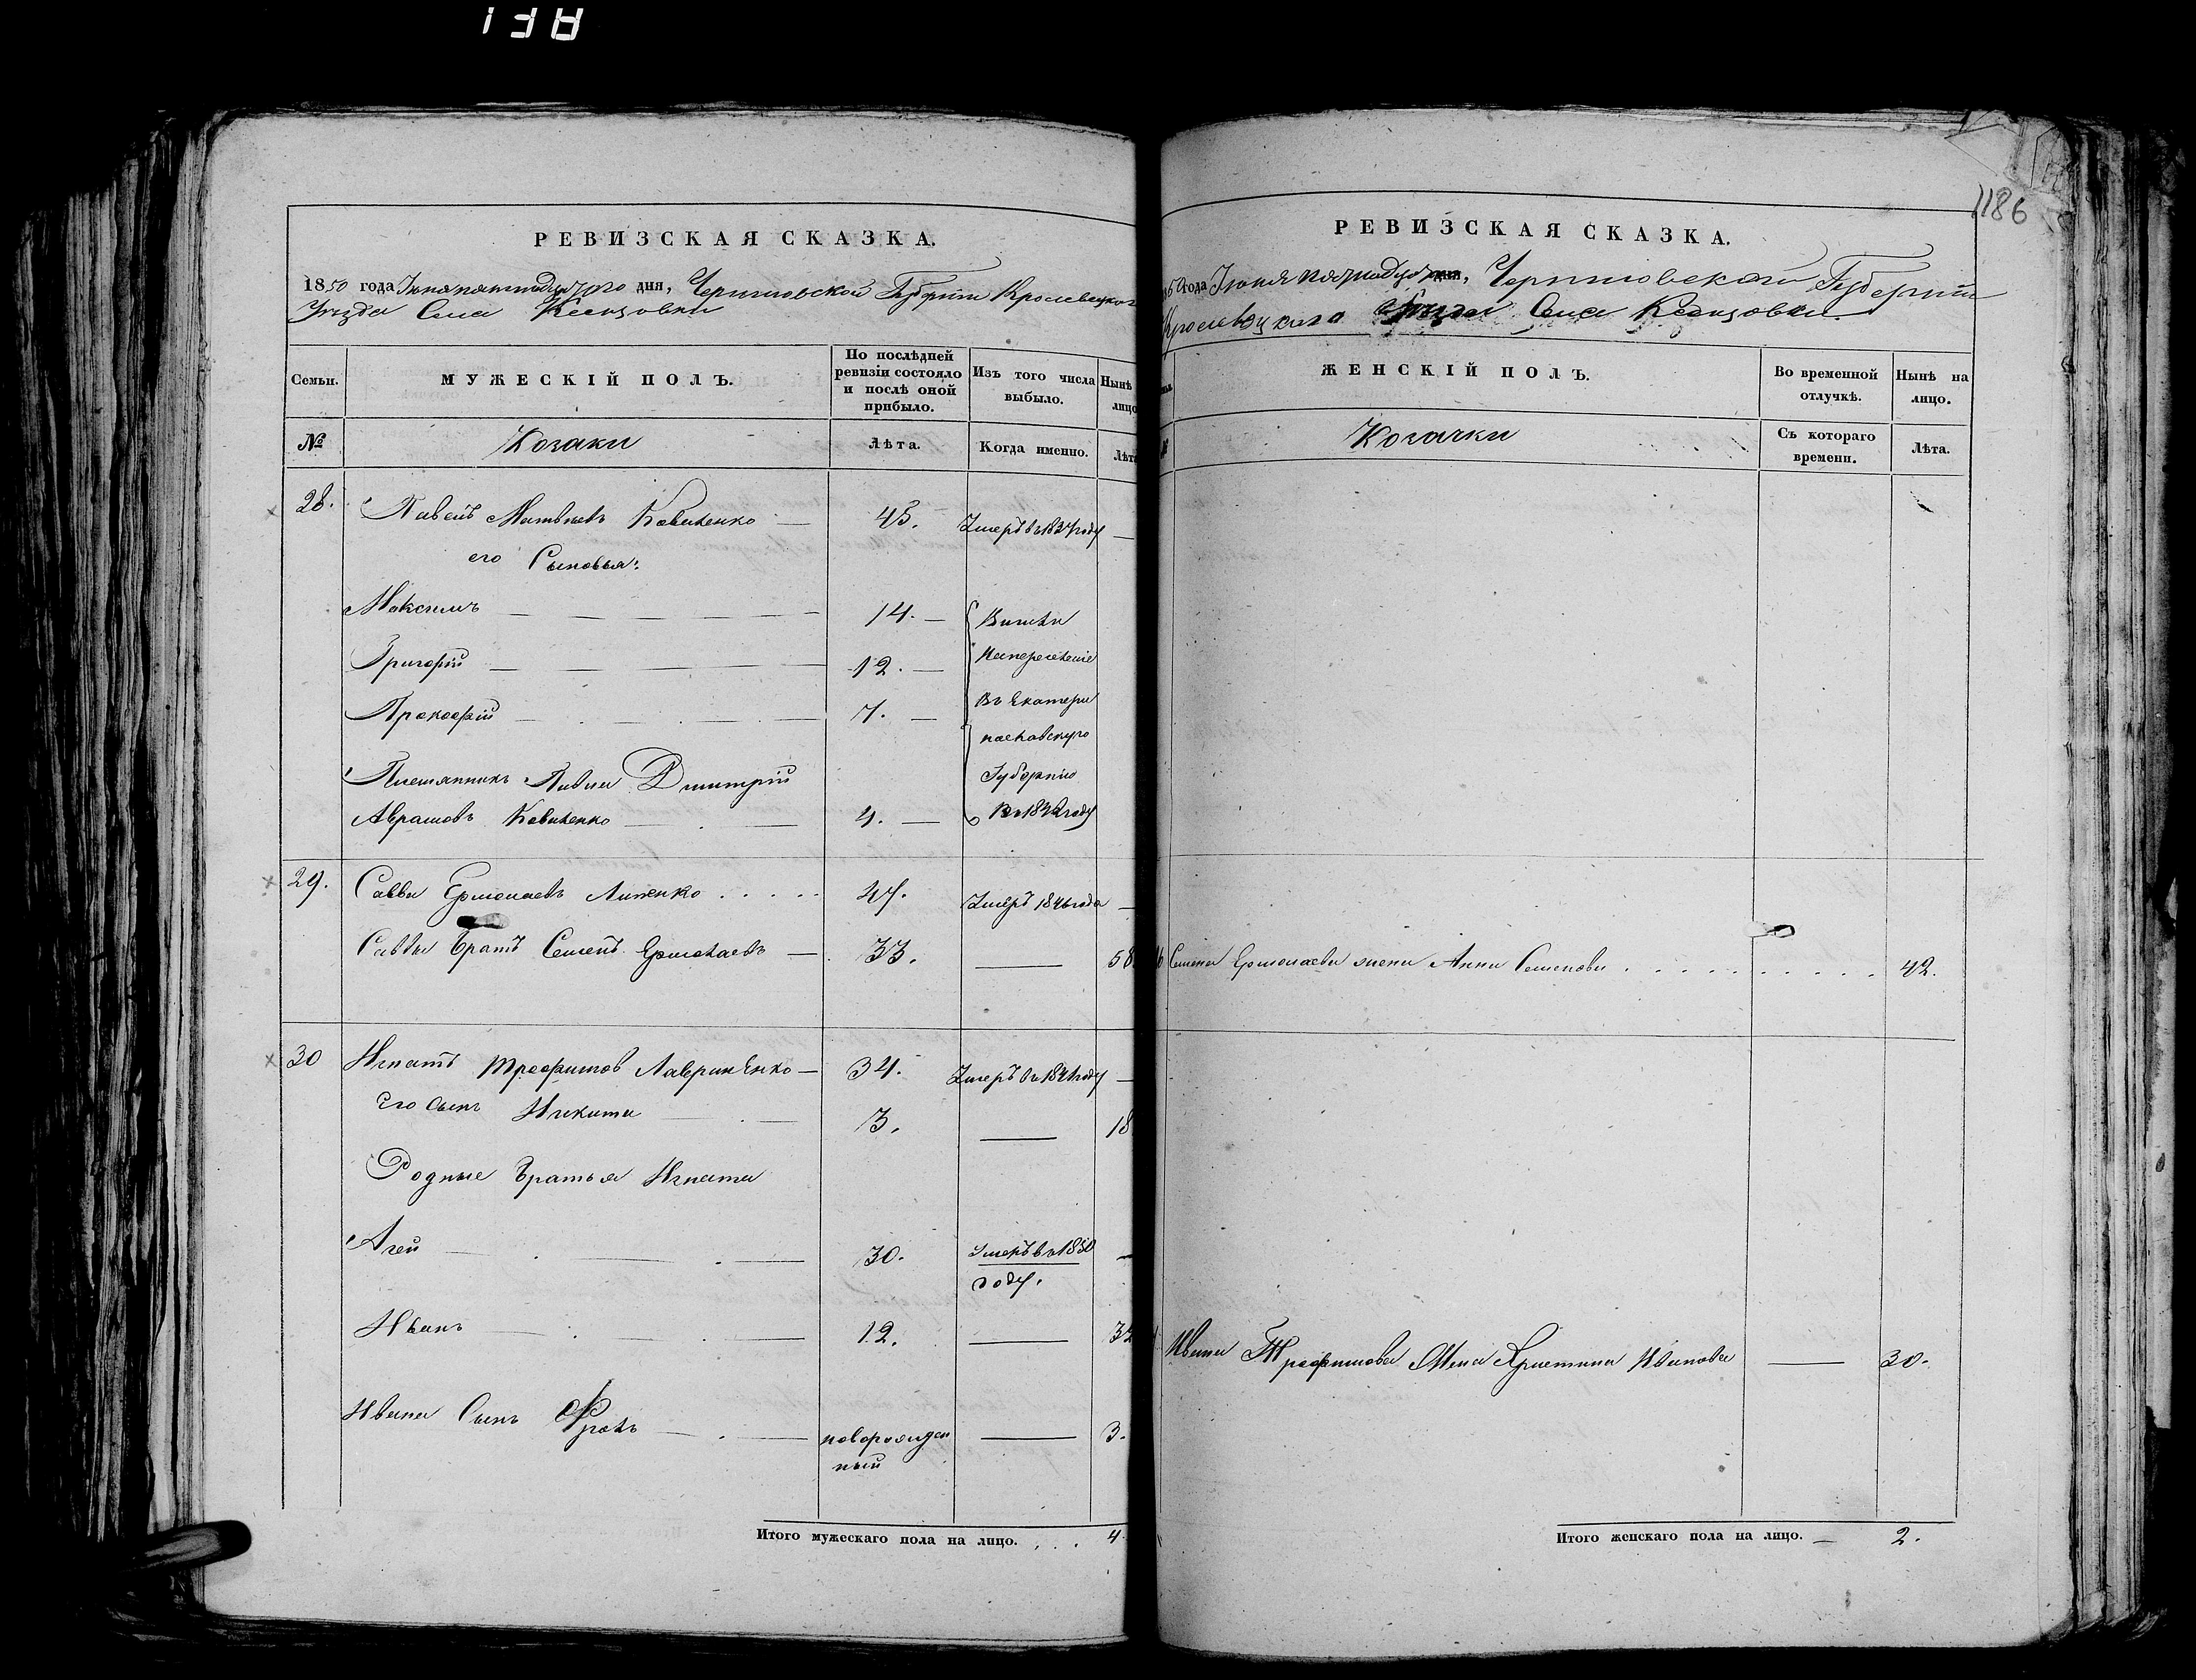 1186
РЕВИЗСКАЯ СКАЗКА.
1850 года Іюня пятнадцатого дня, Черниговской Губерніи Кролевецкого
Уѣзда Села
Семьи. МУЖЕСКІЙ ПОЛЪ. По послѣдней ревизіи состояло и послѣ оной прибыло. Изъ того числа выбыло. Нынѣ лицо
№ Козаки Лѣта. Когда именно. Лѣта
28. Павелъ Матвѣевъ 45. Умеръ въ году —
его Сыновья:
Максимъ 14. —
Григорій 12. —
Прокофій 7. —
Племянникъ Павла Дмитрій
Аврамовъ 4. —
на переселеніе
Въ Екатери
нославскую
Губернію
въ 1842 году
29. Савва Ермолаевъ 47. Умеръ 1846 года —
Саввы братъ Семенъ Ермолаевъ — 33. — 58
30 Игнатъ Трофимов Лавриненко — 34. Умеръ въ 1841 году —
Его сынъ Никита 3. — 18
Родные братья Игната
Агей 30. Умеръ въ 1850 году. —
Иванъ 12. — 32
Ивана Сынъ Фролъ новорожденный — 3.
Итого мужескаго пола на лицо. . . . 4.
РЕВИЗСКАЯ СКАЗКА.
50 года Іюня дня, Черниговской Губерніи
Кролевецкаго Уѣзда Села
ЖЕНСКІЙ ПОЛЪ. Во временной отлучкѣ. Нынѣ на лицо.
Козачки Съ котораго времени. Лѣта.
Семена Ермолаева жена Анна Семенова 42.
Ивана Трофимова Жена Христина Иванова — 30.
Итого женскаго пола на лицо. — 2.